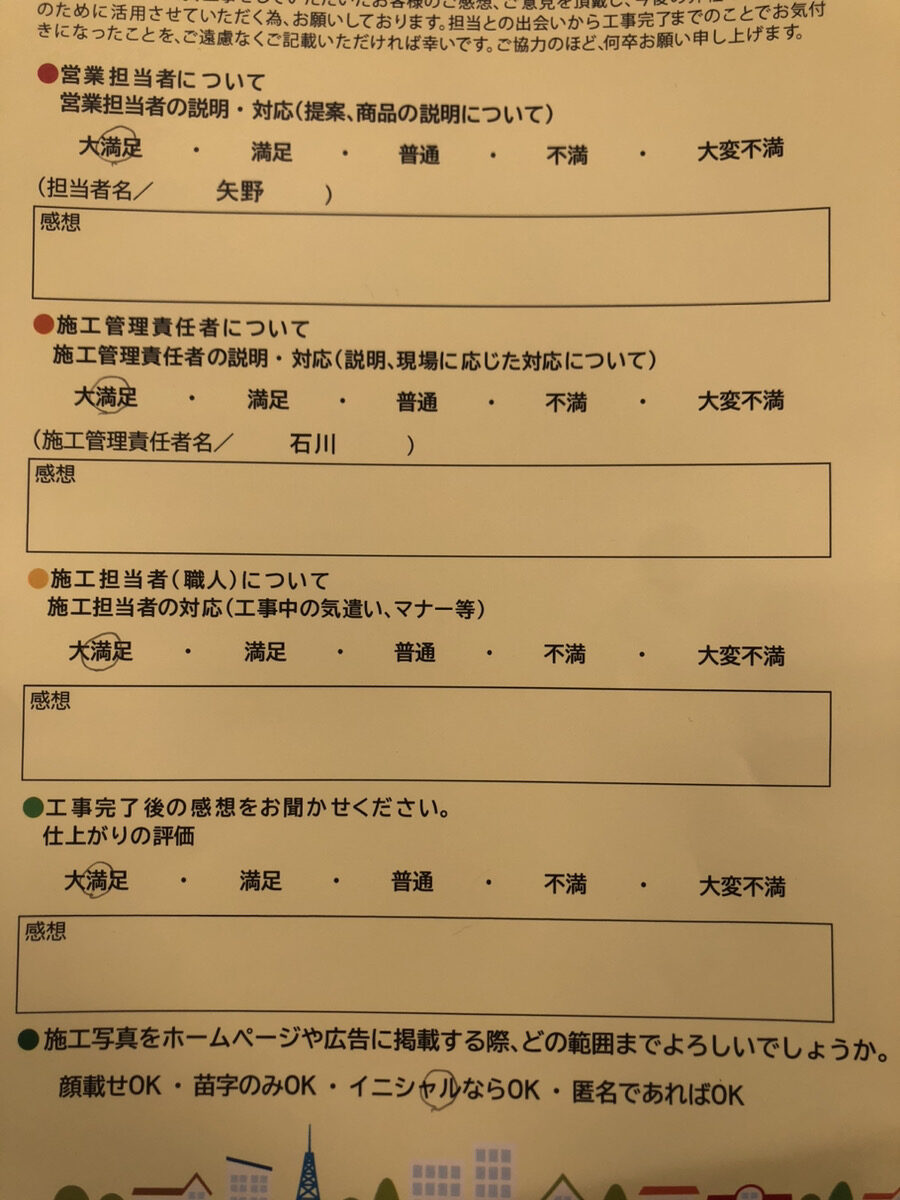 のために活用させていただく為、お願いしております。担当との出会いから工事完了までのことでお気付
きになったことを、ご遠慮なくご記載いただければ幸いです。ご協力のほど、何卒お願い申し上げます。
●営業担当者について
営業担当者の説明・対応(提案、商品の説明について)
大満足 ・ 満足 ・ 普通 ・ 不満 ・ 大変不満
(担当者名／ 矢野 )
感想
●施工管理責任者について
施工管理責任者の説明・対応(説明、現場に応じた対応について)
大満足 ・ 満足 ・ 普通 ・ 不満 ・ 大変不満
(施工管理責任者名／ 石川 )
感想
●施工担当者(職人)について
施工担当者の対応(工事中の気遣い、マナー等)
大満足 ・ 満足 ・ 普通 ・ 不満 ・ 大変不満
感想
●工事完了後の感想をお聞かせください。
仕上がりの評価
大満足 ・ 満足 ・ 普通 ・ 不満 ・ 大変不満
感想
●施工写真をホームページや広告に掲載する際、どの範囲までよろしいでしょうか。
顔載せOK ・ 苗字のみOK ・ イニシャルならOK ・ 匿名であればOK